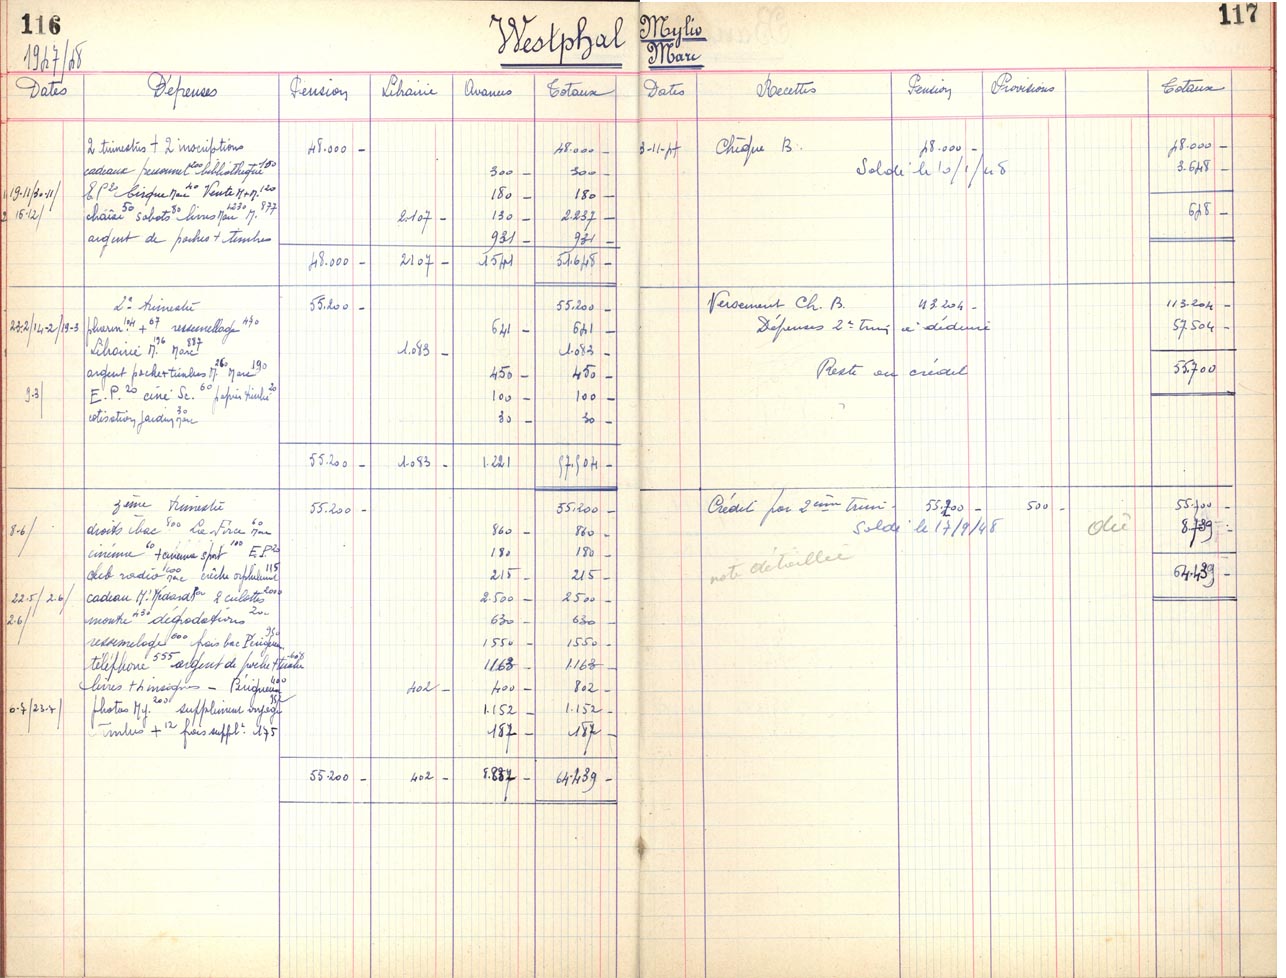 116
1947/48
Westphal
Dates Dépenses Pension Librairie Avances Totaux
2 trimestres + 2 inscriptions 48.000 - 48.000 -
cadeaux personnel 200 bibliothèque 100 300 - 300 -
19-11/30-11/ E.P 20 40 Vente M+M. 120 180 - 180 -
15-12/ 50 sabots 80 livres Marc 1230 M. 877 2.107 - 130 - 2.237 -
argent de poches + timbres 931 - 931 -
48.000 - 2107 - 1541 - 51.648 -
2e trimestre 55.200 - 55.200 -
23.2/14-2/19-3 pharm. 104 + 67 ressemellage 470 641 - 641 -
Librairie M. 196 Marc 887 1.083 - 1.083 -
argent poche + timbres M. 260 Marc 190 450 - 450 -
9.3/ E.P. 20 ciné Sc. 60 papier timbré 20 100 - 100 -
cotisation jardin Marc 30 30 - 30 -
55.200 - 1.083 - 1.221 57.504 -
3ème trimestre 55.200 - 55.200 -
8.6/ droits bac 800 La Force 60 Marc 860 - 860 -
cinéma 60 + cinéma sport 100 E.P. 20 180 - 180 -
club radio Marc 100 crèche orphelinat 115 215 - 215 -
22.5/2.6/ cadeau Mr Médard 2 culottes 2000 2.500 - 2500 -
2.6/ montre 430 dégradations 200 630 - 630 -
ressemelage 600 frais bac Périgueux 950 1550 - 1550 -
téléphone 555 argent de poche + timbres 608 1163 - 1.163 -
livres + insignes - Périgueux 400 402 - 400 - 802 -
photos My. 200 supplément voyage 952 1.152 - 1.152 -
Timbres + 12 frais suppl. 175 187 - 187 -
55.200 - 402 - 8.837 - 64.439 -
117
Mylio
Marc
Dates Recettes Pension Provisions Totaux
3-11-47 Chèque B. 48.000 - 48.000 -
Solde le 10/1/48 3.648 -
648 -
Versement Ch. B. 113.204 - 113.204 -
Dépenses 2e trim à déduire 57.504 -
Reste au crédit 55.700
Crédit par 2ème trim - 55.200 - 500 - 55.700 -
Soldé le 17/9/48 dû 8.739 -
note détaillée
64.439 -